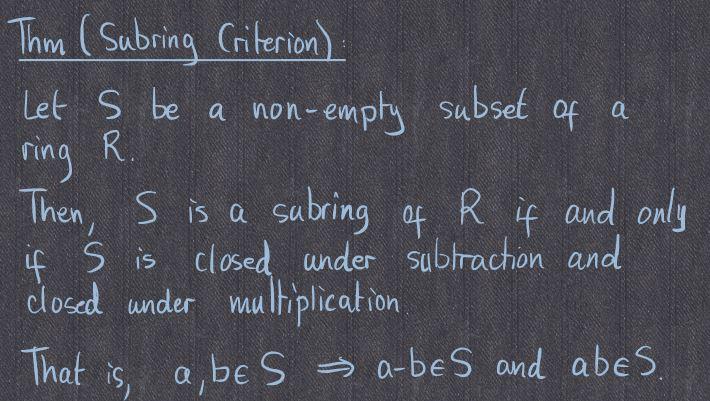 Thm (Subring Criterion):
Let S be a non-empty subset of a
ring R.
Then, S is a subring of R if and only
if S is closed under subtraction and
closed under multiplication.
That is, a,b∈S ⇒ a-b∈S and ab∈S.